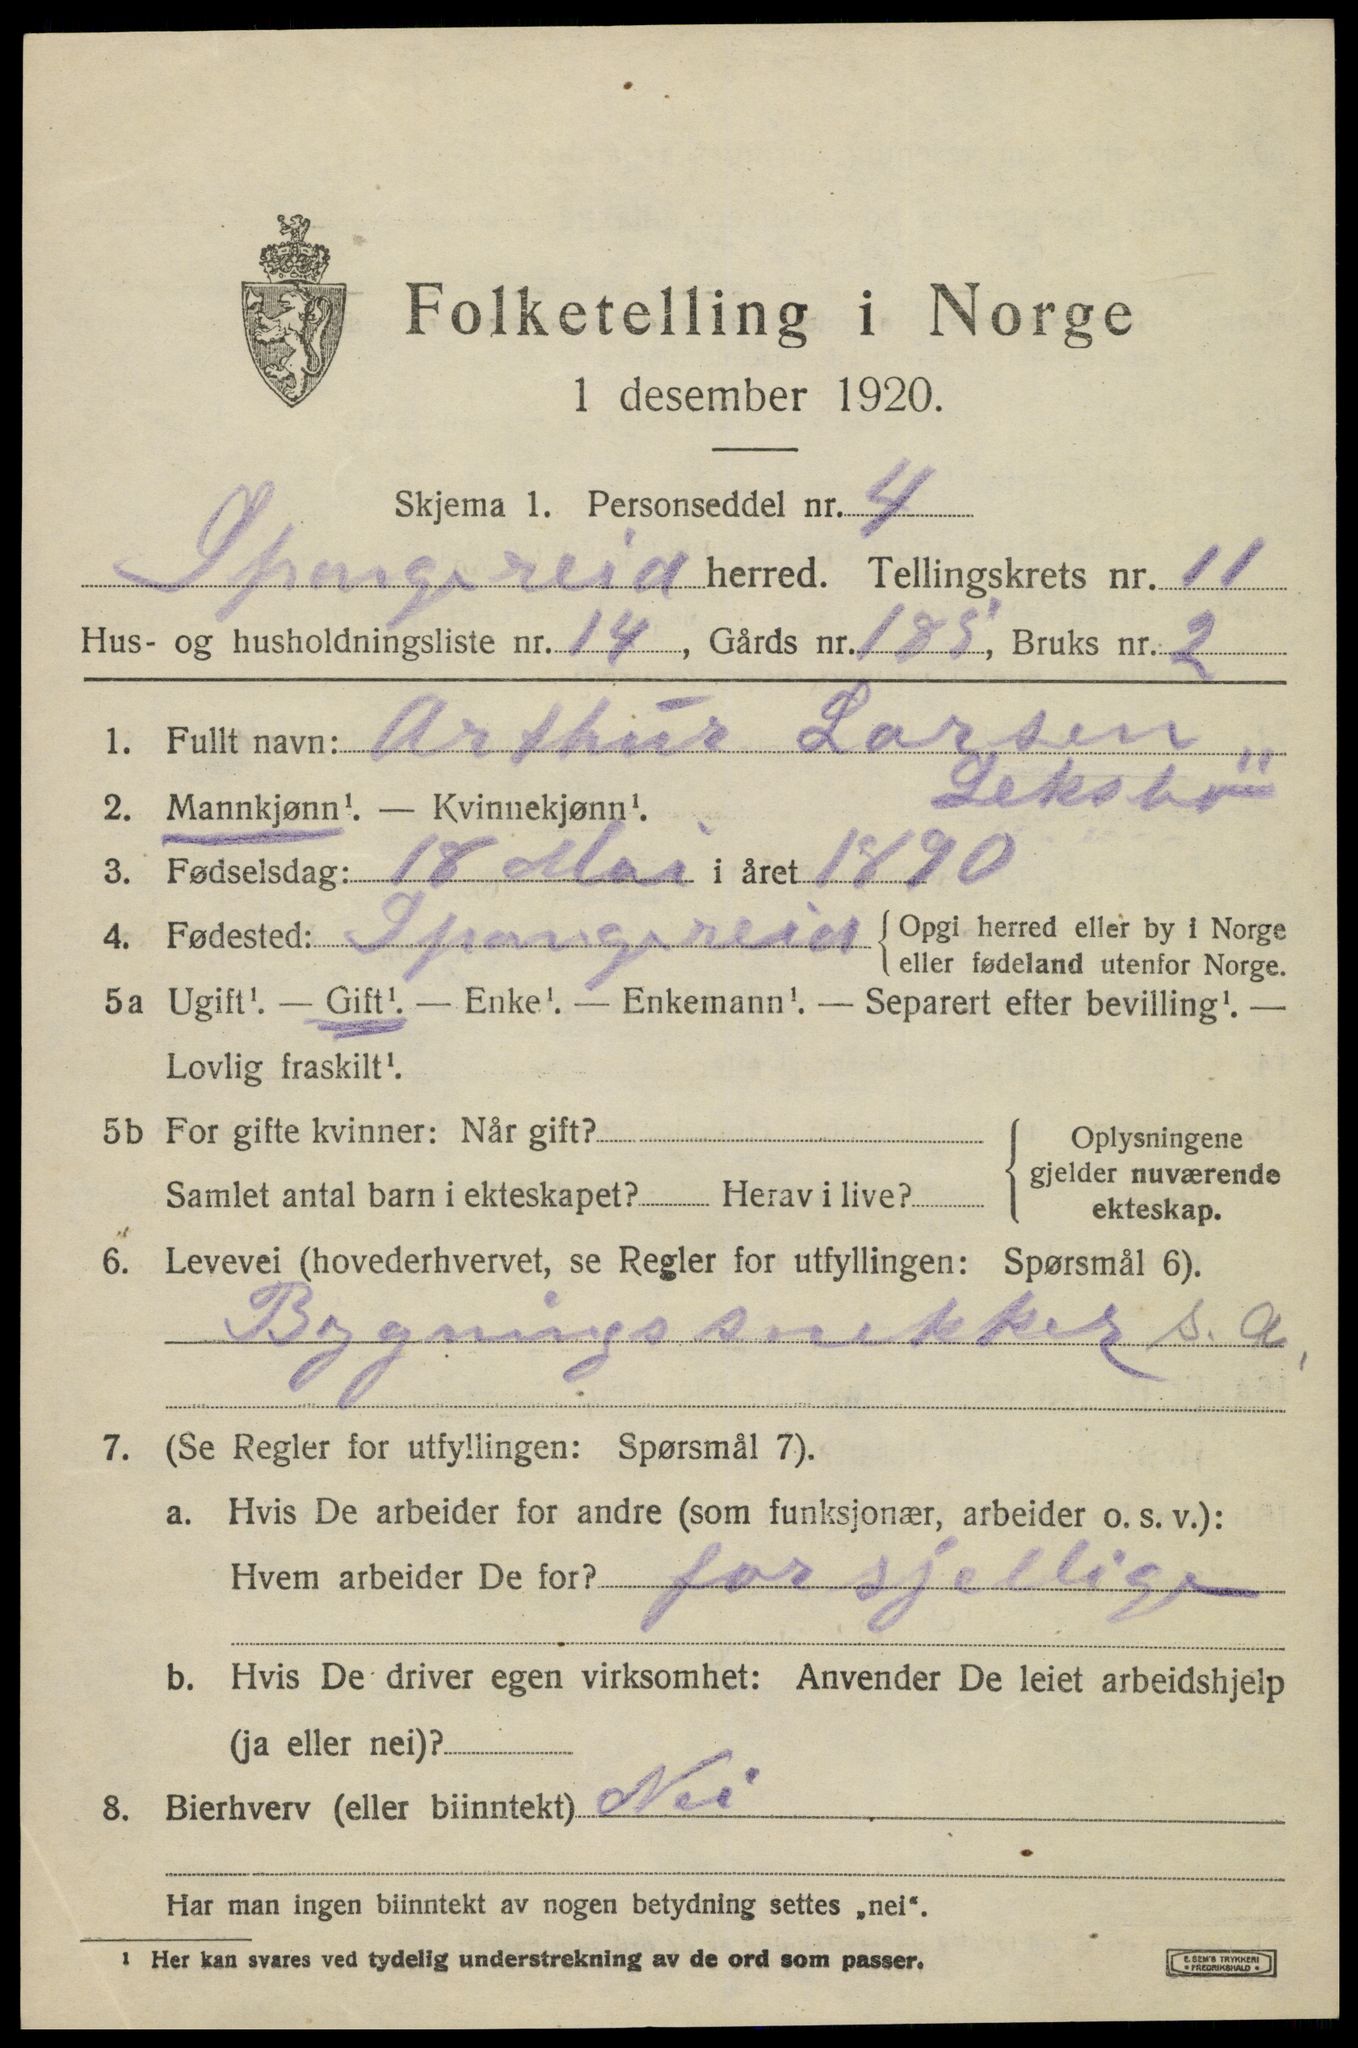 Folketelling i Norge
1 desember 1920.
Skjema 1. Personseddel nr. 4
Spangereid herred. Tellingskrets nr. 11
Hus- og husholdningsliste nr. 14, Gårds nr. 185, Bruks nr. 2
1. Fullt navn: Arthur Larsen
Leksbö
2. Mannkjønn¹. — Kvinnekjønn¹.
3. Fødselsdag: 18 Mai i året 1890
4. Fødested: Spangereid { Opgi herred eller by i Norge
eller fødeland utenfor Norge.
5a Ugift¹. — Gift¹. — Enke¹. — Enkemann¹. — Separert efter bevilling¹. —
Lovlig fraskilt¹.
5b For gifte kvinner: Når gift? { Oplysningene
gjelder nuværende
Samlet antal barn i ekteskapet? Herav i live?
ekteskap.
6. Levevei (hovederhvervet, se Regler for utfyllingen: Spørsmål 6).
Bygningssnekker s. a,
7. (Se Regler for utfyllingen: Spørsmål 7).
a. Hvis De arbeider for andre (som funksjonær, arbeider o. s. v.):
Hvem arbeider De for? forsjellige
b. Hvis De driver egen virksomhet: Anvender De leiet arbeidshjelp
(ja eller nei)?
8. Bierhverv (eller biinntekt) Nei
Har man ingen biinntekt av nogen betydning settes „nei“.
¹ Her kan svares ved tydelig understrekning av de ord som passer.
E. SEM'S TRYKKERI
• FREDRIKSHALD •